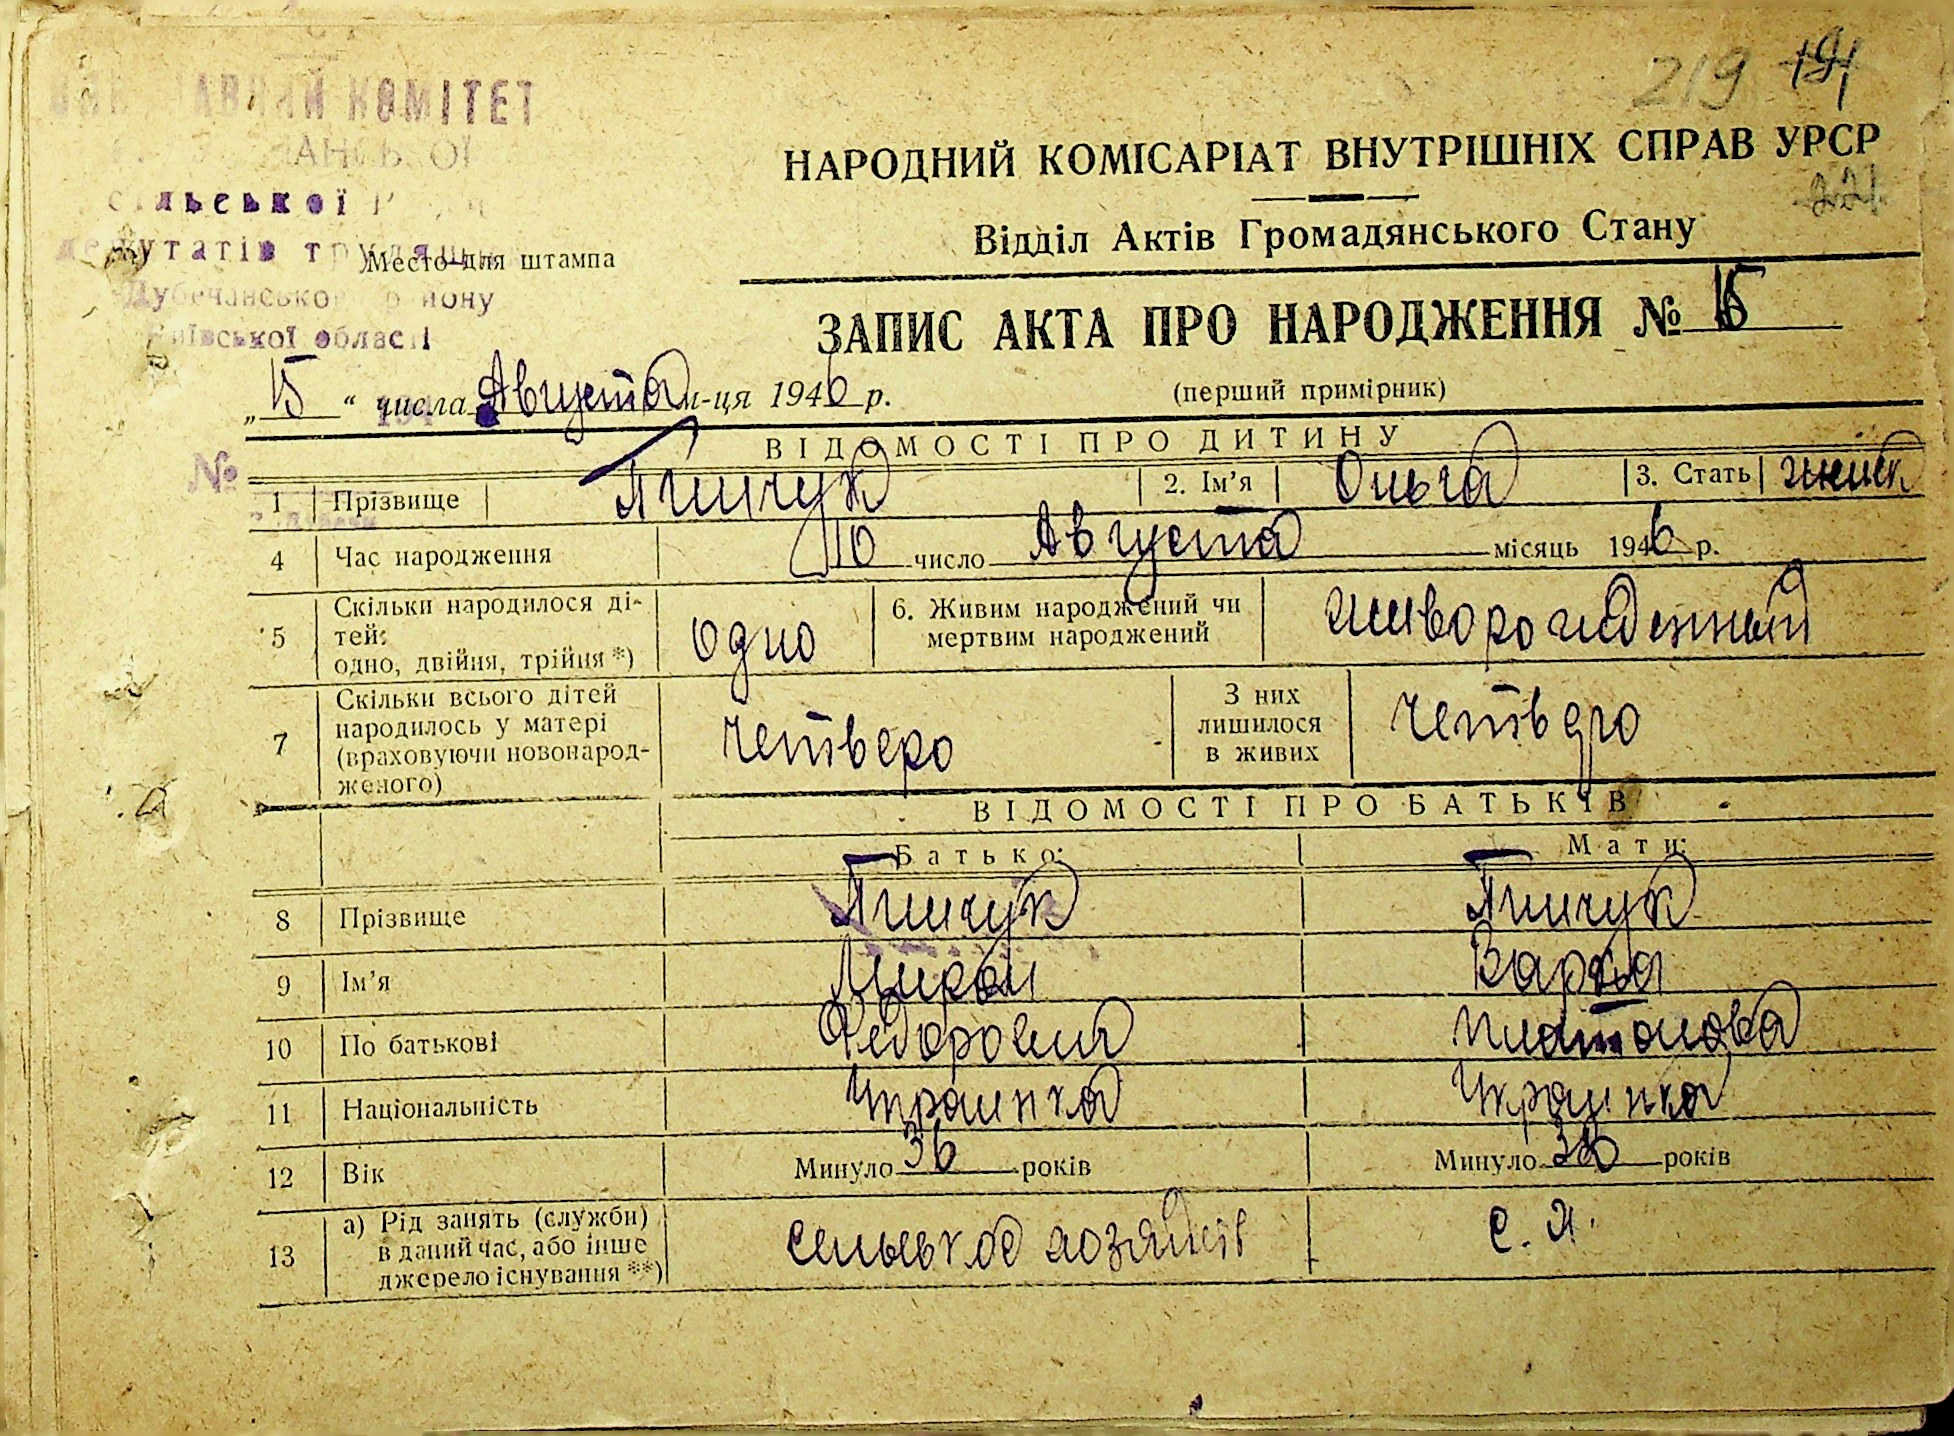 219 191
КОМІТЕТ
сільської
депутатів трудящ
Дубечансько району
Київської області
Место для штампа
НАРОДНИЙ КОМІСАРІАТ ВНУТРІШНІХ СПРАВ УРСР
221
Відділ Актів Громадянського Стану
ЗАПИС АКТА ПРО НАРОДЖЕННЯ № 15
(перший примірник)
„15“ числа Августа м-ця 1946 р.
№
ВІДОМОСТІ ПРО ДИТИНУ
1 Прізвище Пинчук 2. Ім’я Ольга 3. Стать женск
4 Час народження 10 число Августа місяць 1946 р.
5 Скільки народилося ді-
тей:
одно, двійня, трійня *) одно
6. Живим народжений чи
мертвим народжений живорожденный
7 Скільки всього дітей
народилось у матері
(враховуючи новонарод-
женого) четверо
З них
лишилося
в живих четверо
ВІДОМОСТІ ПРО БАТЬКІВ
Батько: Мати:
8 Прізвище Пинчук Пинчук
9 Ім’я Мирон Варка
10 По батькові Федорович Платонова
11 Національність Украинка Украинка
12 Вік Минуло 36 років Минуло років
13 а) Рід занять (служби)
в даний час, або інше
джерело існування **) сельское хозяйств с. х.